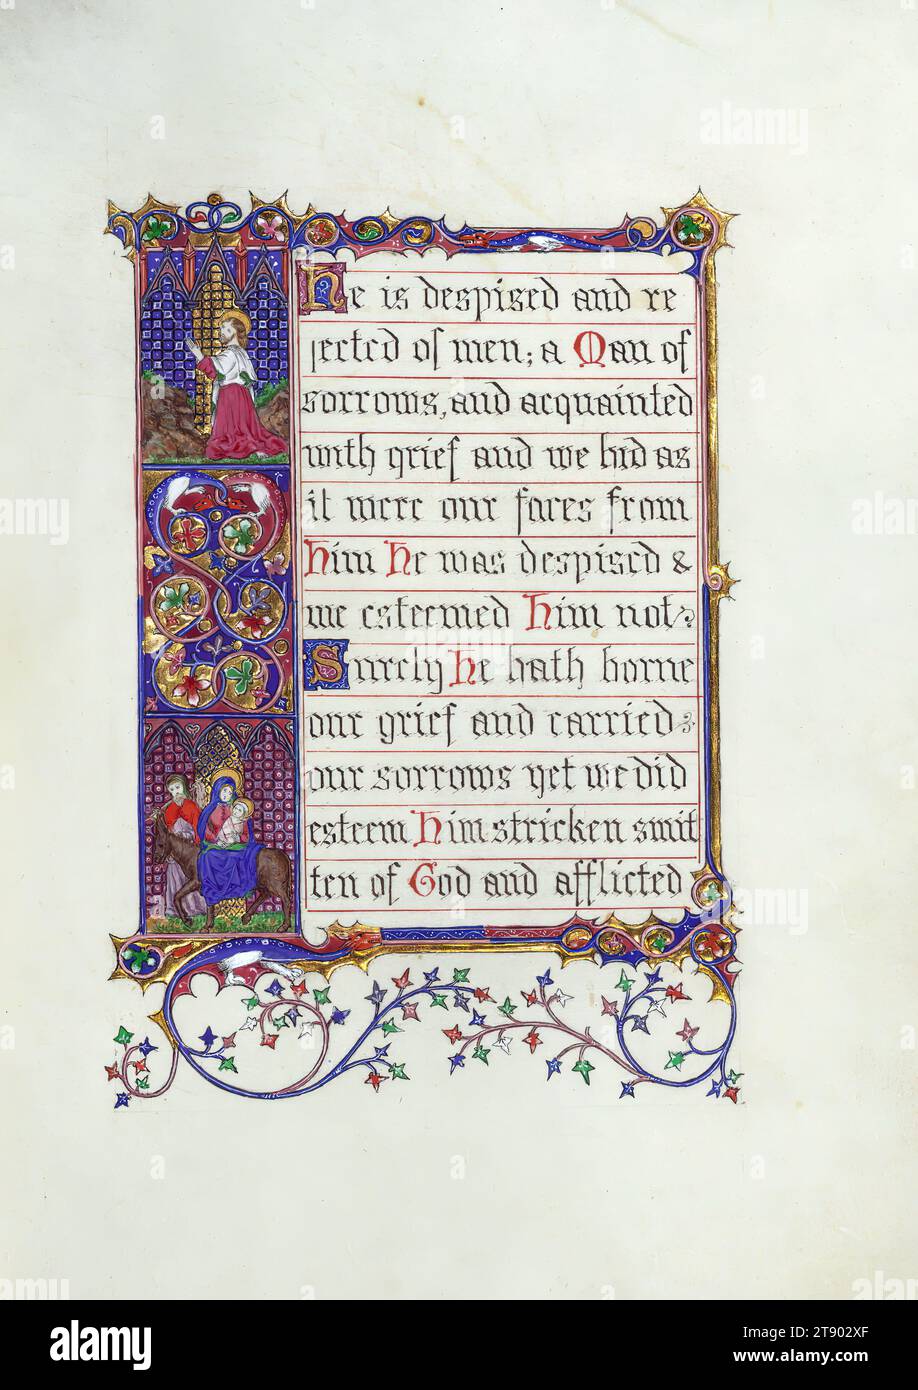 He is despised and re
jected of men; a Man of
sorrows, and acquainted
with grief and we hid as
it were our faces from
Him He was despised &
we esteemed Him not
Surely He hath borne
our grief and carried
our sorrows yet we did
esteem Him stricken smit
ten of God and afflicted
alamy
Image ID: 2T902XF
www.alamy.com